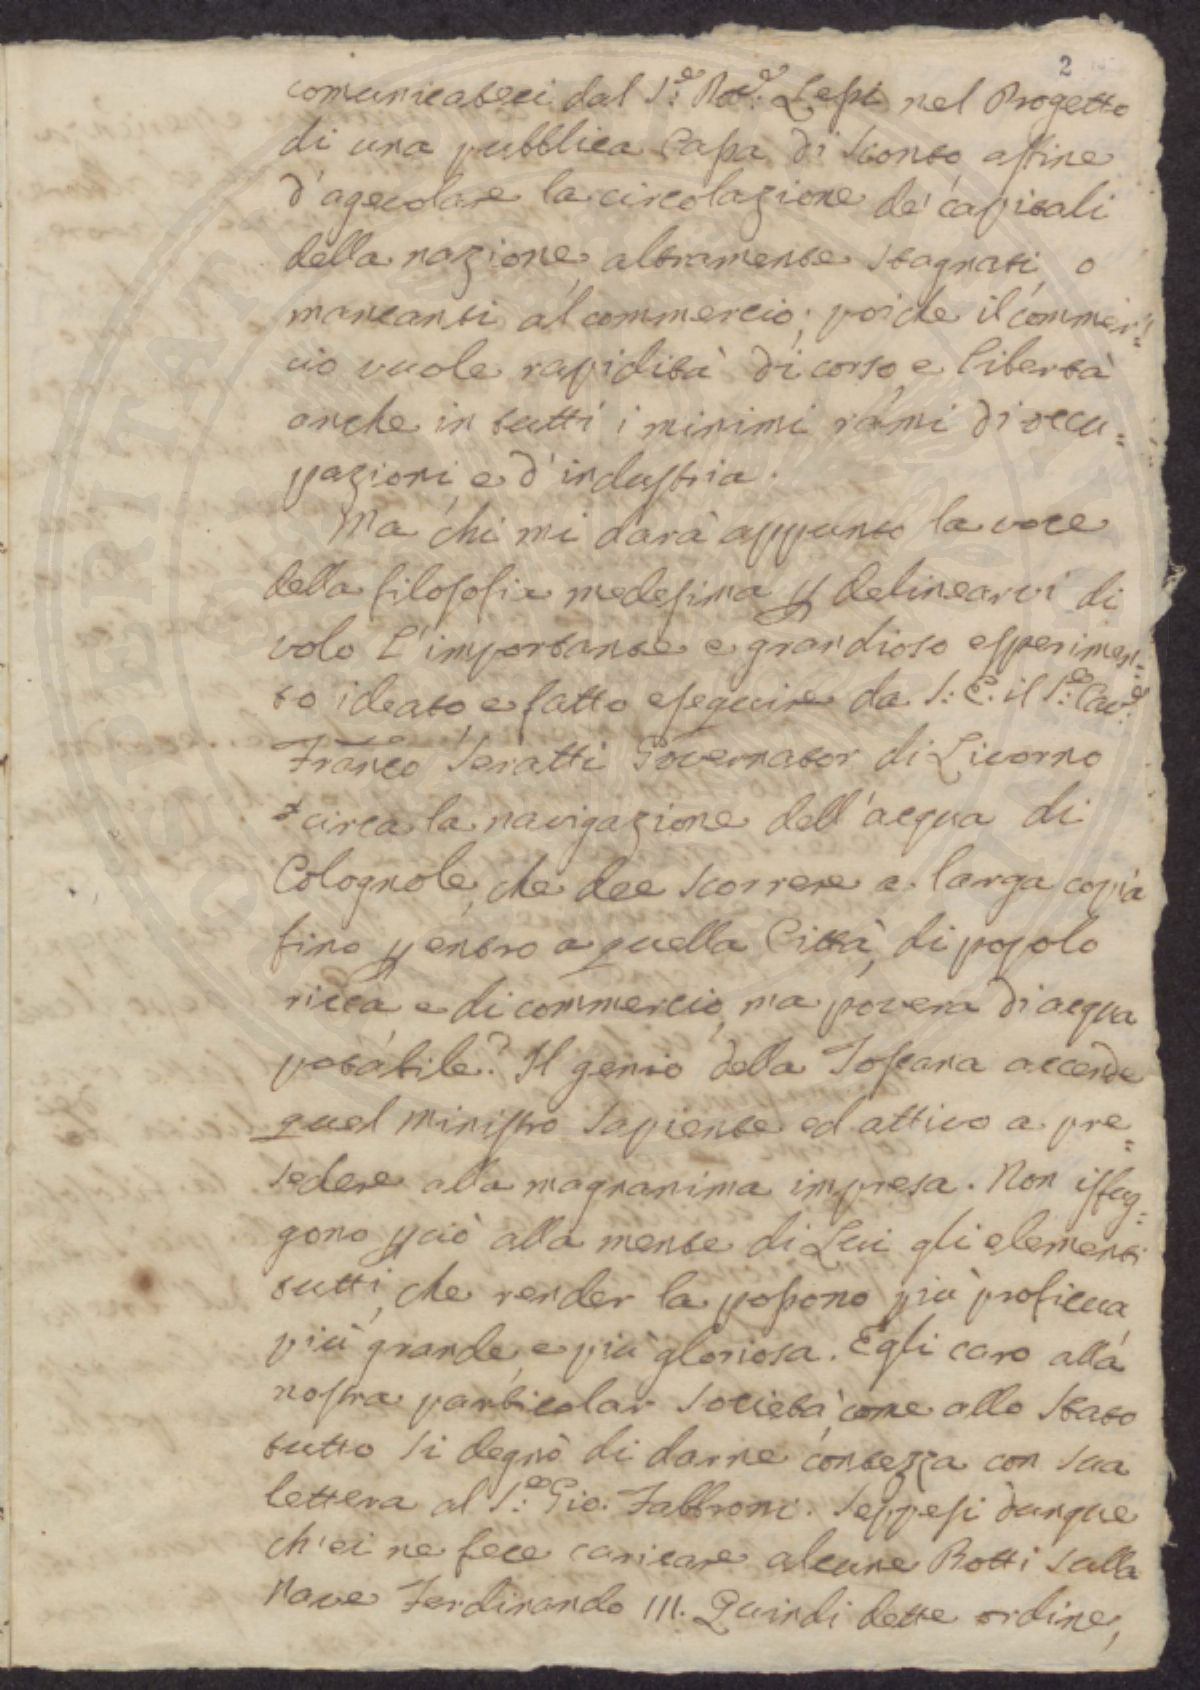 2
comunicateci dal S.e Lessi nel Progetto
di una pubblica Cassa di sconto, affine
d'agevolare la circolazione de' capitali
della nazione, altramente stagnati, o
mancanti al commercio; poiche il commer=
cio vuole rapidità di corso, e libertà
anche in tutti i minimi rami di occu=
pazioni, e d'industria.
Ma chi mi darà appunto la voce
della filosofia medesima p delinearvi di
volo l'importante e grandioso esperimen=
to ideato, e fatto eseguire da S: E. il S:e Cav:e
Franco Seratti Governator di Livorno
circa la navigazione dell'acqua di
Colognole, che dee scorrere a larga copia
fino p entro a quella Città, di popolo
ricca e di commercio, ma povera di acqua
potabile? Il genio della Toscana accende
quel Ministro sapiente ed attivo a pre=
sedere alla magnanima impresa. Non isfug=
gono p ciò alla mente di Lui gli elementi
tutti, che render la possono più proficua
più grande, e più gloriosa. Egli caro alla
nostra particolar Società, come allo Stato
tutto si degnò di darne contezza con sua
lettera al S:e Gio. Fabbroni. Seppesi dunque
ch'ei ne fece caricare alcune Botti sulla
Nave Ferdinando III. Quindi dette ordine,